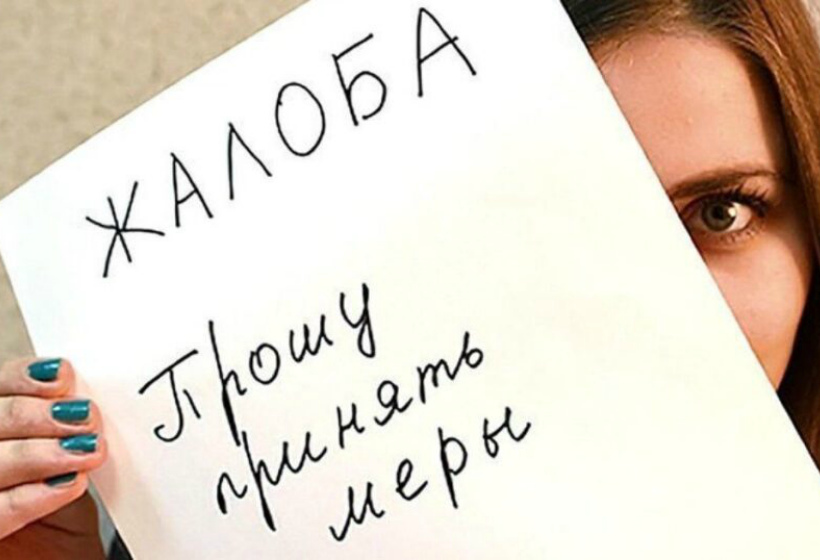 ЖАЛОБА
Прошу
принять
меры